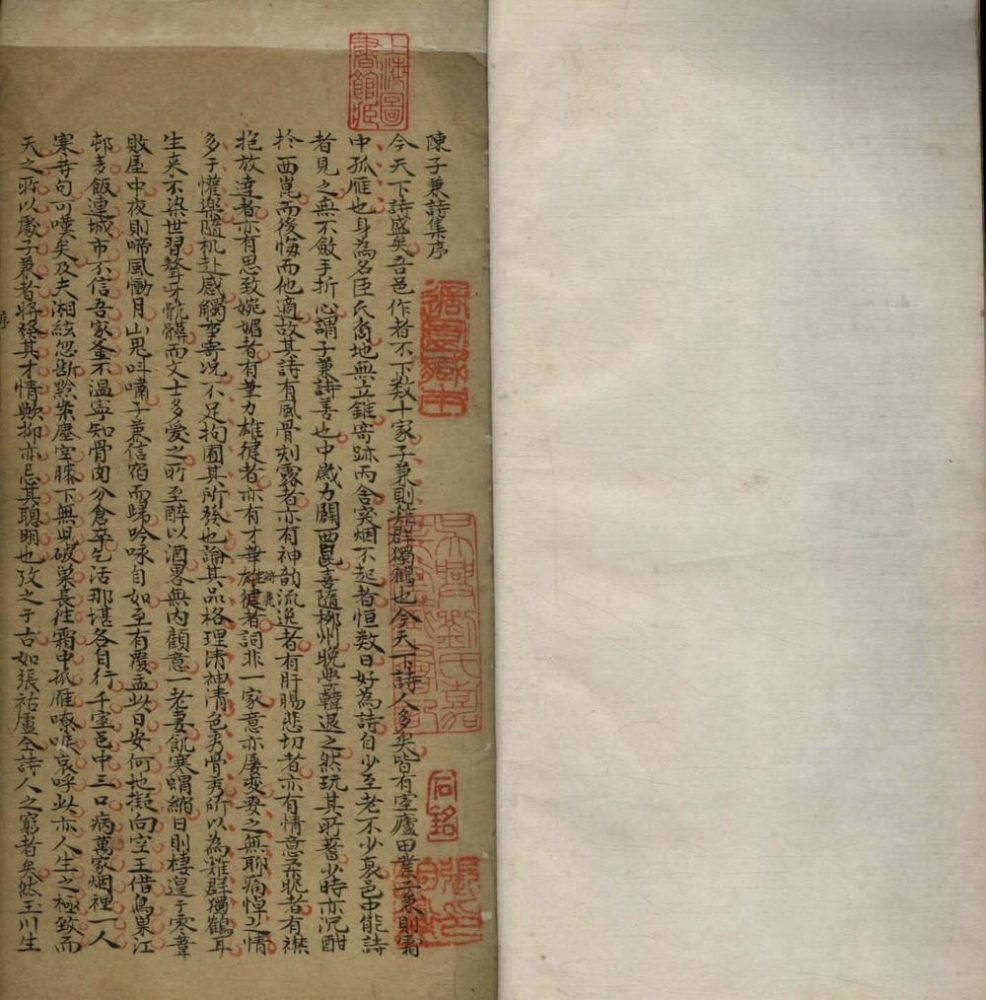 陳子兼詩集序
今天下詩盛矣吾邑作者不下数十家子兼則雞群獨鶴也今天下詩人多矣皆有室廬田業子兼則霜
中孤雁也身為名臣氏裔地無立錐寄跡丙舍突烟不起者恒数日好為詩自少至老不少衰邑中能詩
者見之無不斂手折心謂子兼詩善也中歲力闢西崑喜隨柳州晚與韓退之然玩其所著少時亦沉酣
於西崑而後悔而他適故其詩有風骨刻露者亦有神韵流逸者有肝腸悲切者亦有情意柔昵者有襟
抱放達者亦有思致婉媚者有筆力雄健者亦有才華雄健者詞非一家意亦屢变要之無聊病悼之情
多于懽樂隨机赴感觸事寄况不足拘囿其所發也論其品格理清神清色秀骨秀所以為雞群獨鶴耳
生来不染世習聱牙骯髒而文士多愛之所至醉以酒畧無内顧意一老妻飢寒蝟縮日則棲遑于寒葦
敗屋中夜則啼風慟月山鬼呌嘯子兼信宿而歸吟咏自如至有覆盂此日安何地擬向空王借鳥巢江
邨麦飯連城市不信吾家釜不温寧知骨肉分倉卒乞活那堪各自行千室邑中三口病萬家烟裡一人
寒等句可嘆矣及夫湘絃忽断黔柴塵室膝下無
破巢長往霜中孤雁嘹唳哀呼此亦人生之極致而
天之所以處子兼者將發其才情歟抑亦忌其聰明也攷之于古如張祜盧仝詩人之窮者矣然玉川生
序
上海圖書館藏
石銘